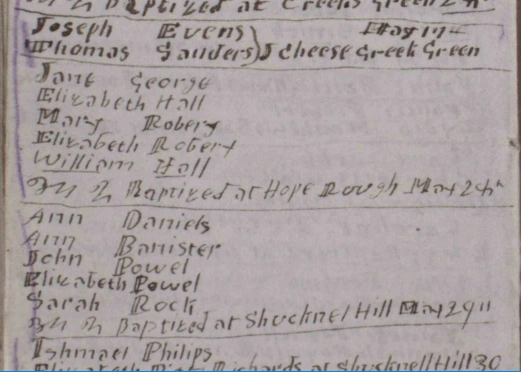 Baptized at Creeks Green 24th
Joseph Evens
Thomas Sanders } Cheese Greek Green
Jane George
Elizabeth Hall
Mary Robert
Elizabeth Robert
William Hall
Baptized at Hope Rough May 24th
Ann Daniels
Ann Banister
John Powel
Elizabeth Powel
Sarah Rock
Baptized at Shucknel Hill May 29
Ishmael Philips
Elizabeth Richards at Shucknell Hill 30